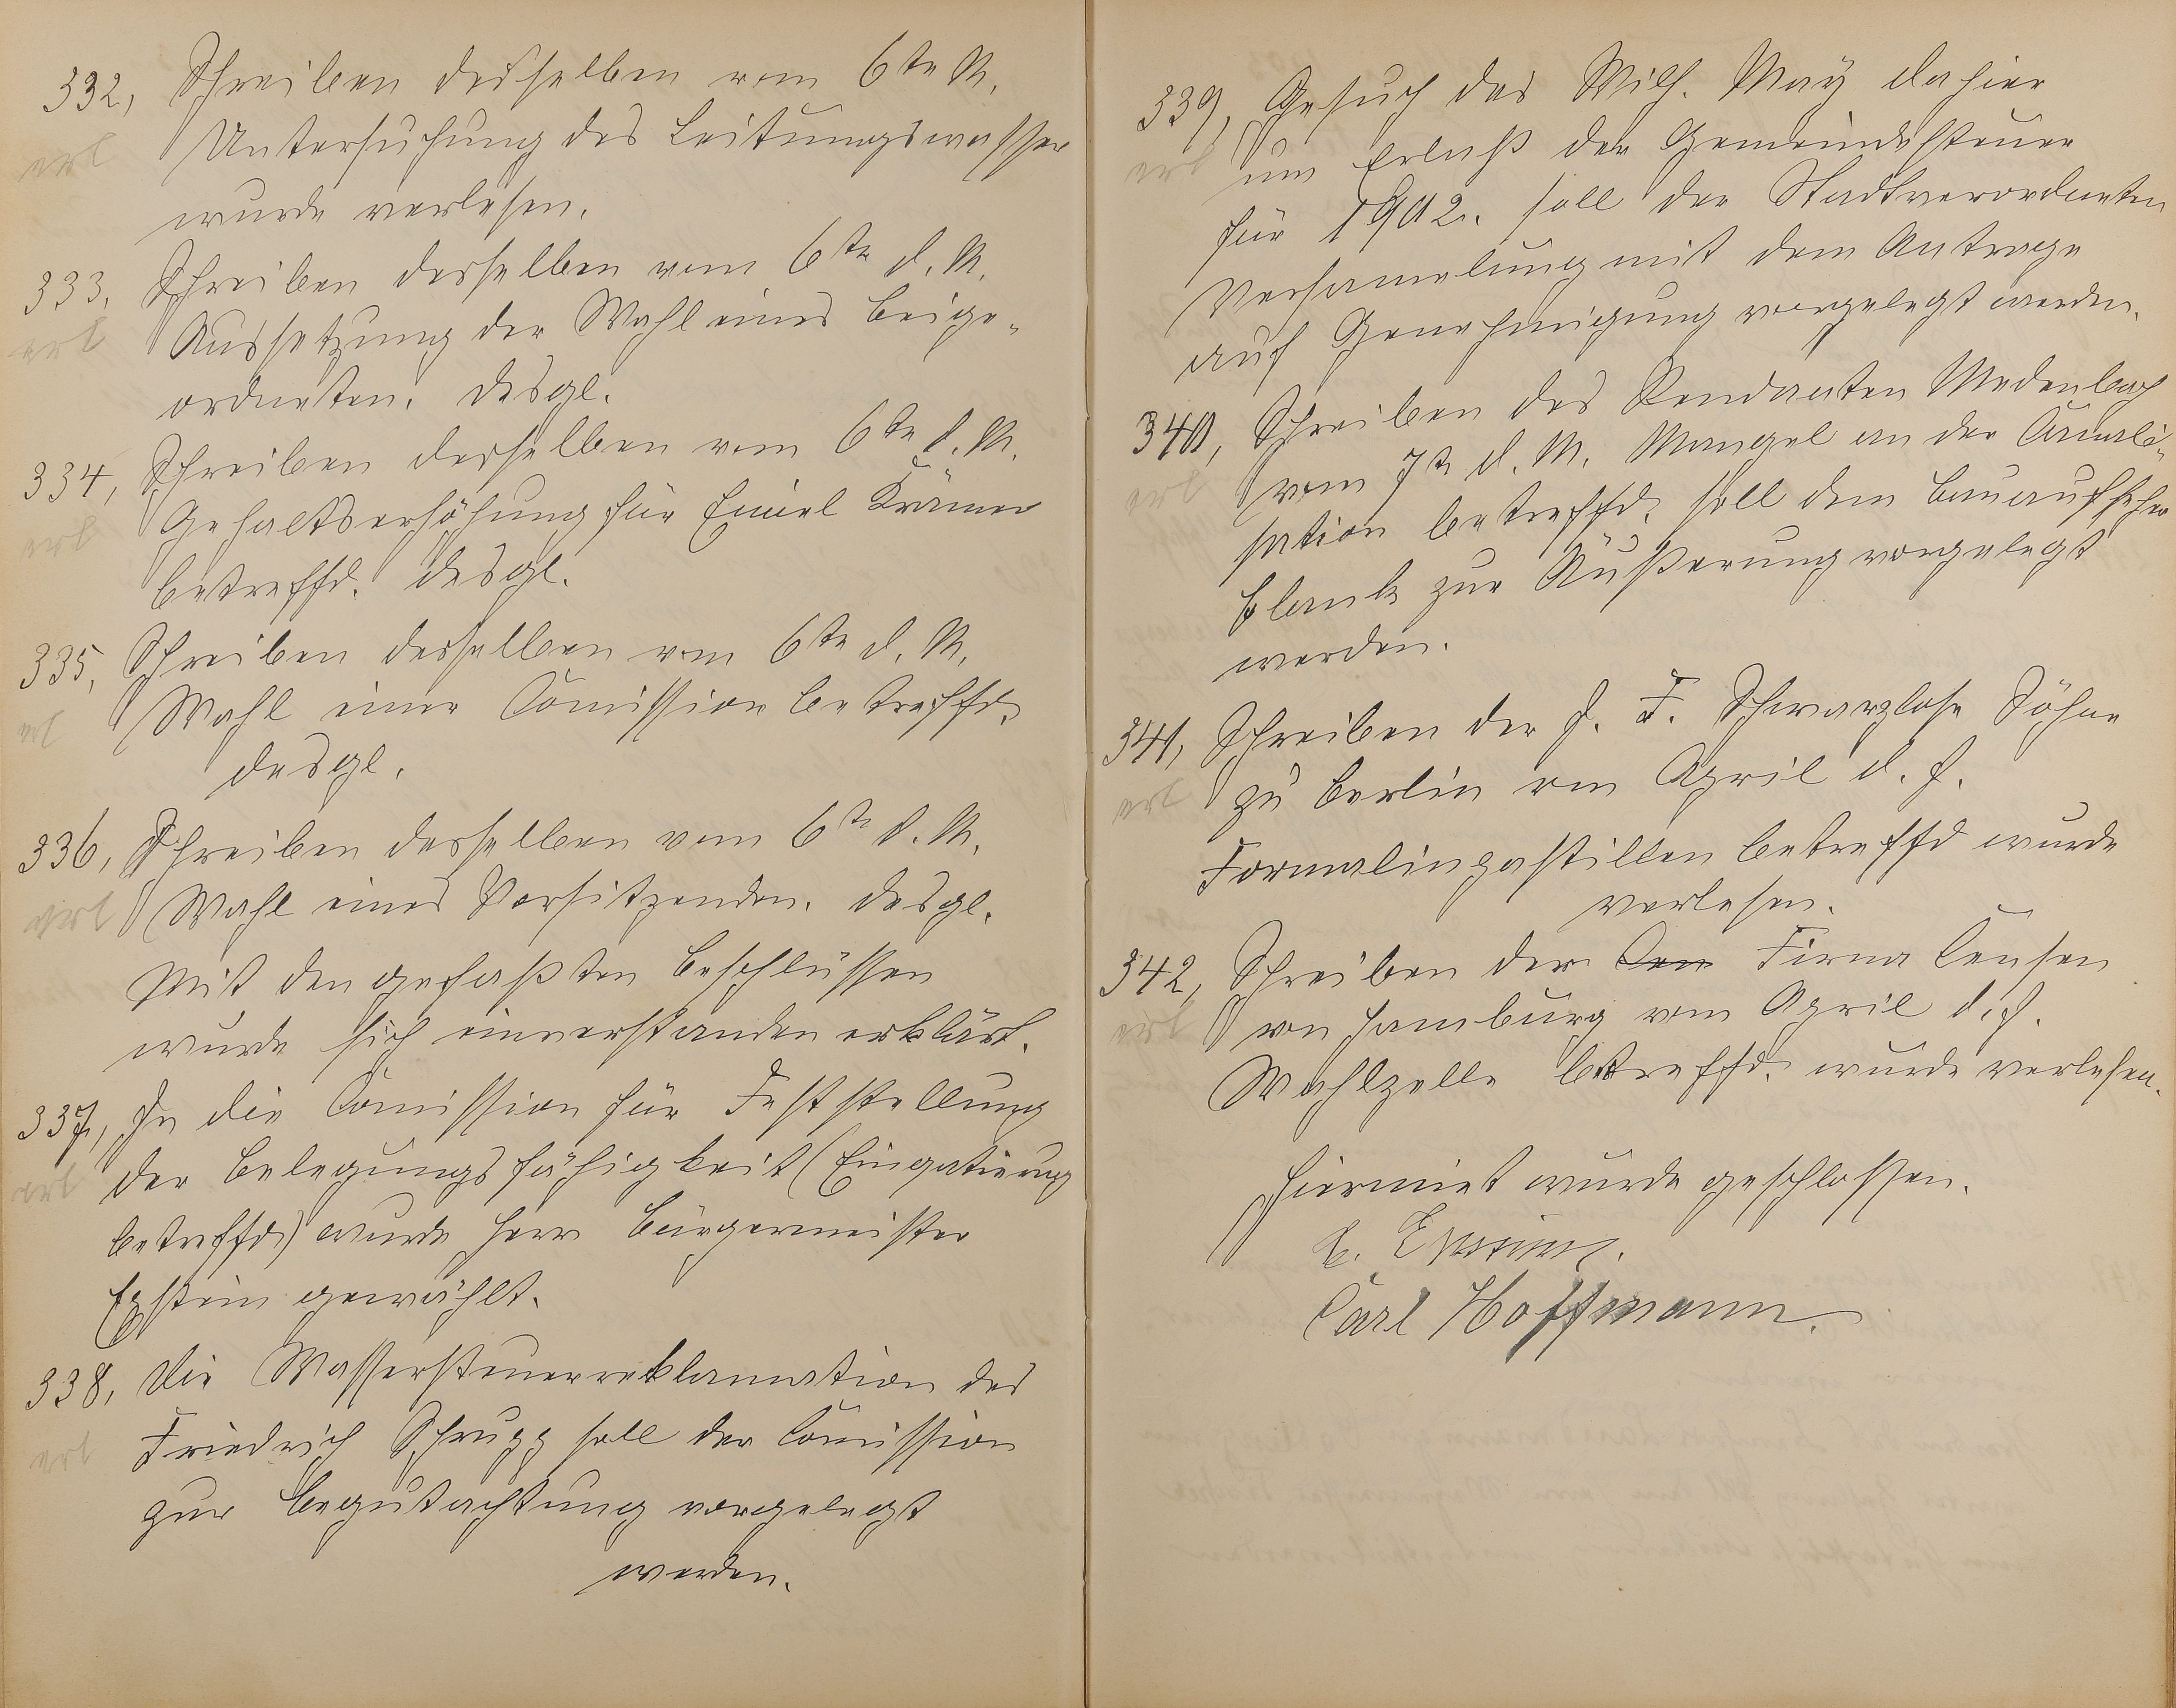 332, Schreiben desselben vom 6ten M.
erl Untersuchung des Leitungswasser
wurde verlesen.
333, Schreiben desselben vom 6ten d. M.
erl Aussetzung der Wahl eines Beige-
ordneten. desgl.
334, Schreiben desselben vom 6ten d. M.
erl Gehaltserhöhung für Emiel Krämer
betreffd. desgl.
335, Schreiben desselben vom 6ten d. M.
erl Wahl einer Com̅ission betreffd.
desgl.
336, Schreiben desselben vom 6ten d. M.
erl Wahl eines Vorsitzenden. desgl.
Mit den gefaßten Beschlüssen
wurde sich einverstanden erklärt.
337, In die Com̅ission für Feststellung
erl der Belegungsfähigkeit (Einqatierung
betreffd) wurde Herr Bürgermeister
Epstein gewählt.
338, Die Wassersteuerreklamation des
erl Friedrich Schrupp soll der Com̅ission
zur Begutachtung vorgelegt
werden.
339, Gesuch des Wilh. May dahier
erl um Erlaß der Gemeindesteuer
für 1902. soll der Stadtverordneten
Versamelung mit dem Antrage
auf Genehmigung vorgelegt werden.
340, Schreiben des Rendanten Medenbach
erl vom 7ten d. M. Mangel an der Canali-
sation betreffd. soll dem Bauaufseher
Blank zur Äußerung vorgelegt
werden.
341, Schreiben der J. F. Schwarzlose Söhne
erl zu Berlin vom April d. J.
Formalinpastillen betreffd wurde
verlesen.
342, Schreiben der Firma
erl von Hamburg vom April d. J.
Wahlzelle betreffd. wurde verlesen.
Hiermiet wurde geschlossen.
Epstein.
Carl Hoffmann.